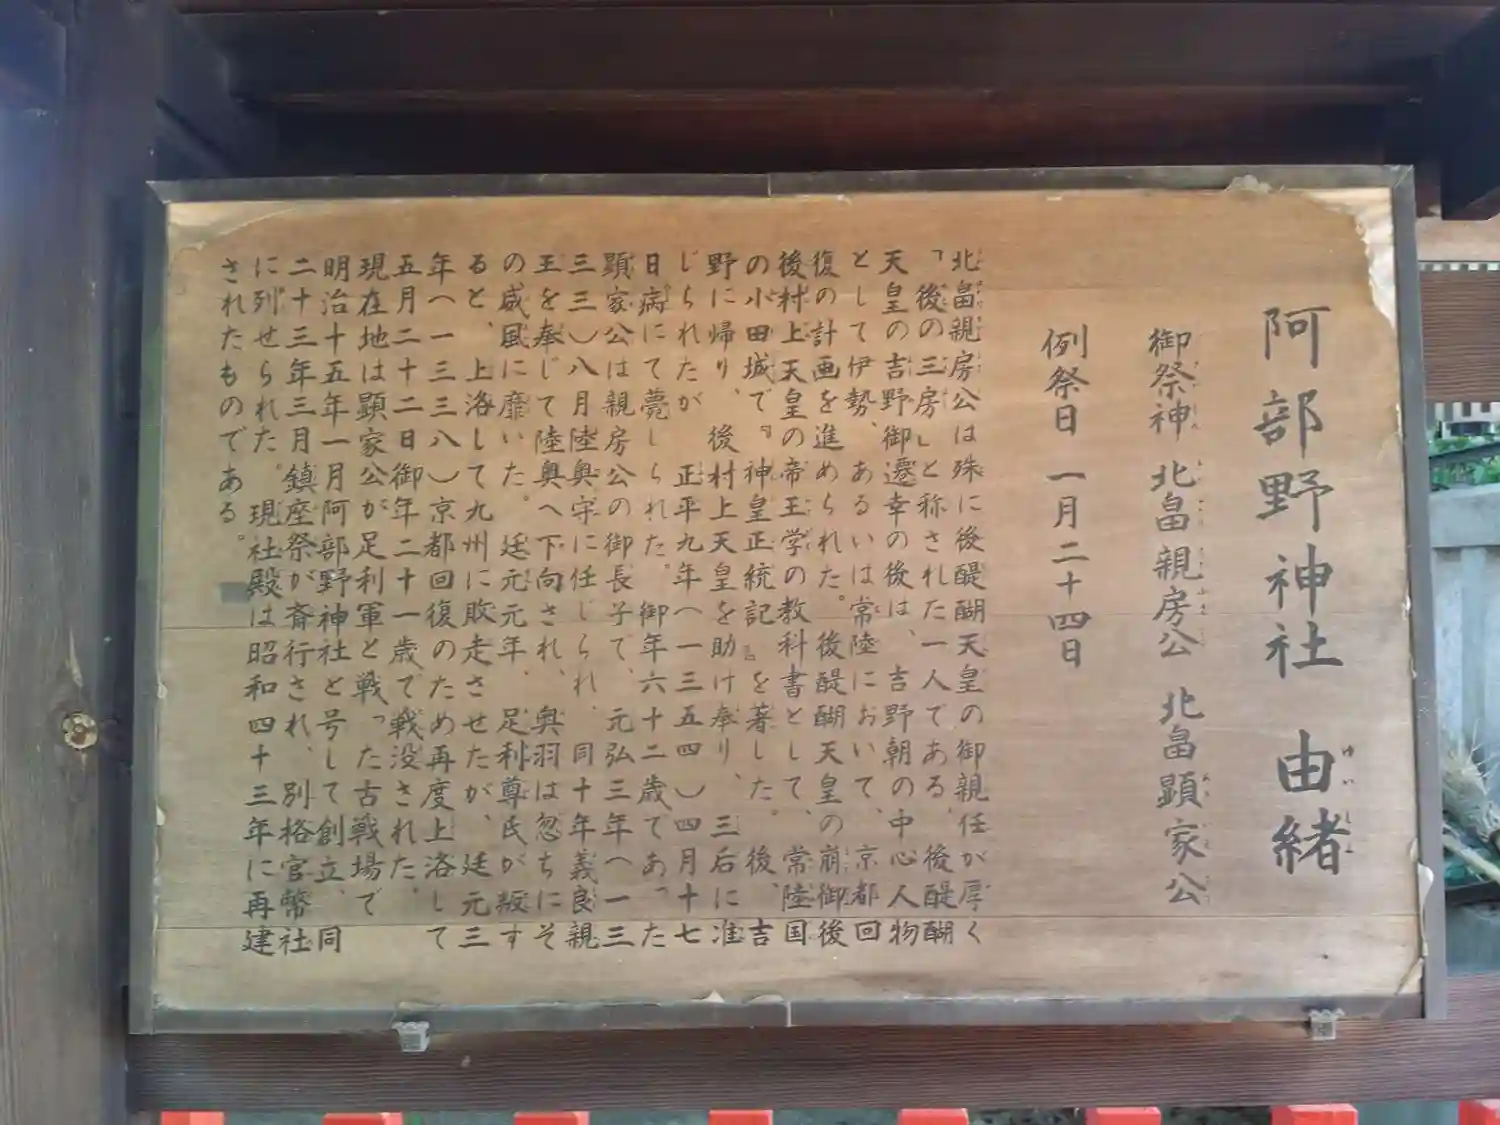 阿部野神社 由緒
御祭神 北畠親房公 北畠顕家公
例祭日 一月二十四日
北畠親房公は殊に後醍醐天皇の御親任が厚く
「後の三房」と称された一人である、後醍醐
天皇の吉野御遷幸の後は、吉野朝の中心人物
として伊勢、あるいは常陸において、京都回
復の計画を進められた。後醍醐天皇の崩御後
後村上天皇の帝王学の教科書として、常陸国
の小田城で『神皇正統記』を著した。後、吉
野に帰り、後村上天皇を助け奉り、三后に准
じられたが 正平九年(一三五四)四月十七
日病にて薨しられた。御年六十二歳であった
顕家公は親房公の御長子で、元弘三年(一三
三三)八月陸奥守に任じられ、同十年義良親
王を奉じて陸奥へ下向され、奥羽は忽ちにそ
の威風に靡いた。延元元年、足利尊氏が叛す
ると、上洛して九州に敗走させたが、延元三
年(一三三八)京都回復のため再度上洛して
五月二十二日御年二十一歳で戦没された、
現在地は顕家公が足利軍と戦った古戦場で
明治十五年一月阿部野神社と号して創立、同
二十三年三月鎮座祭が斉行され、別格官幣社
に列せられた。現社殿は昭和四十三年に再建
されたものである。